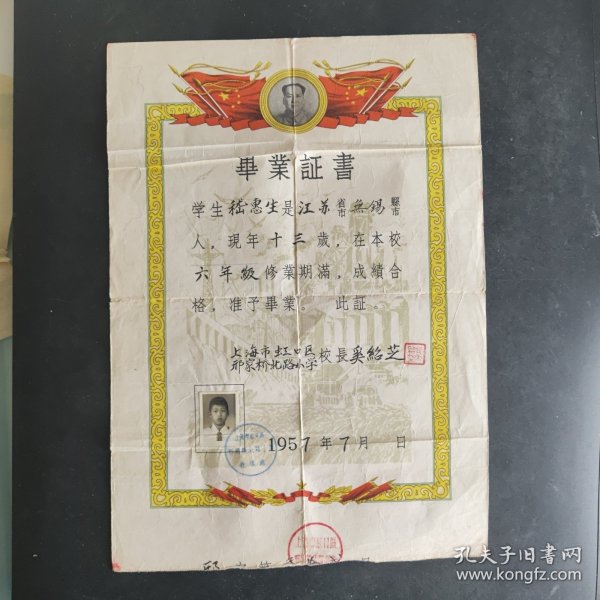 畢業証書
学生嵇惠生是江苏省市無锡縣市
人，現年十三歲，在本校
六年級修業期滿，成績合
格，准予畢業。 此証。
上海市虹口区
邢家桥北路小学
校長奚紹芝
1957年7月 日
孔夫子旧书网
www.kongfz.com